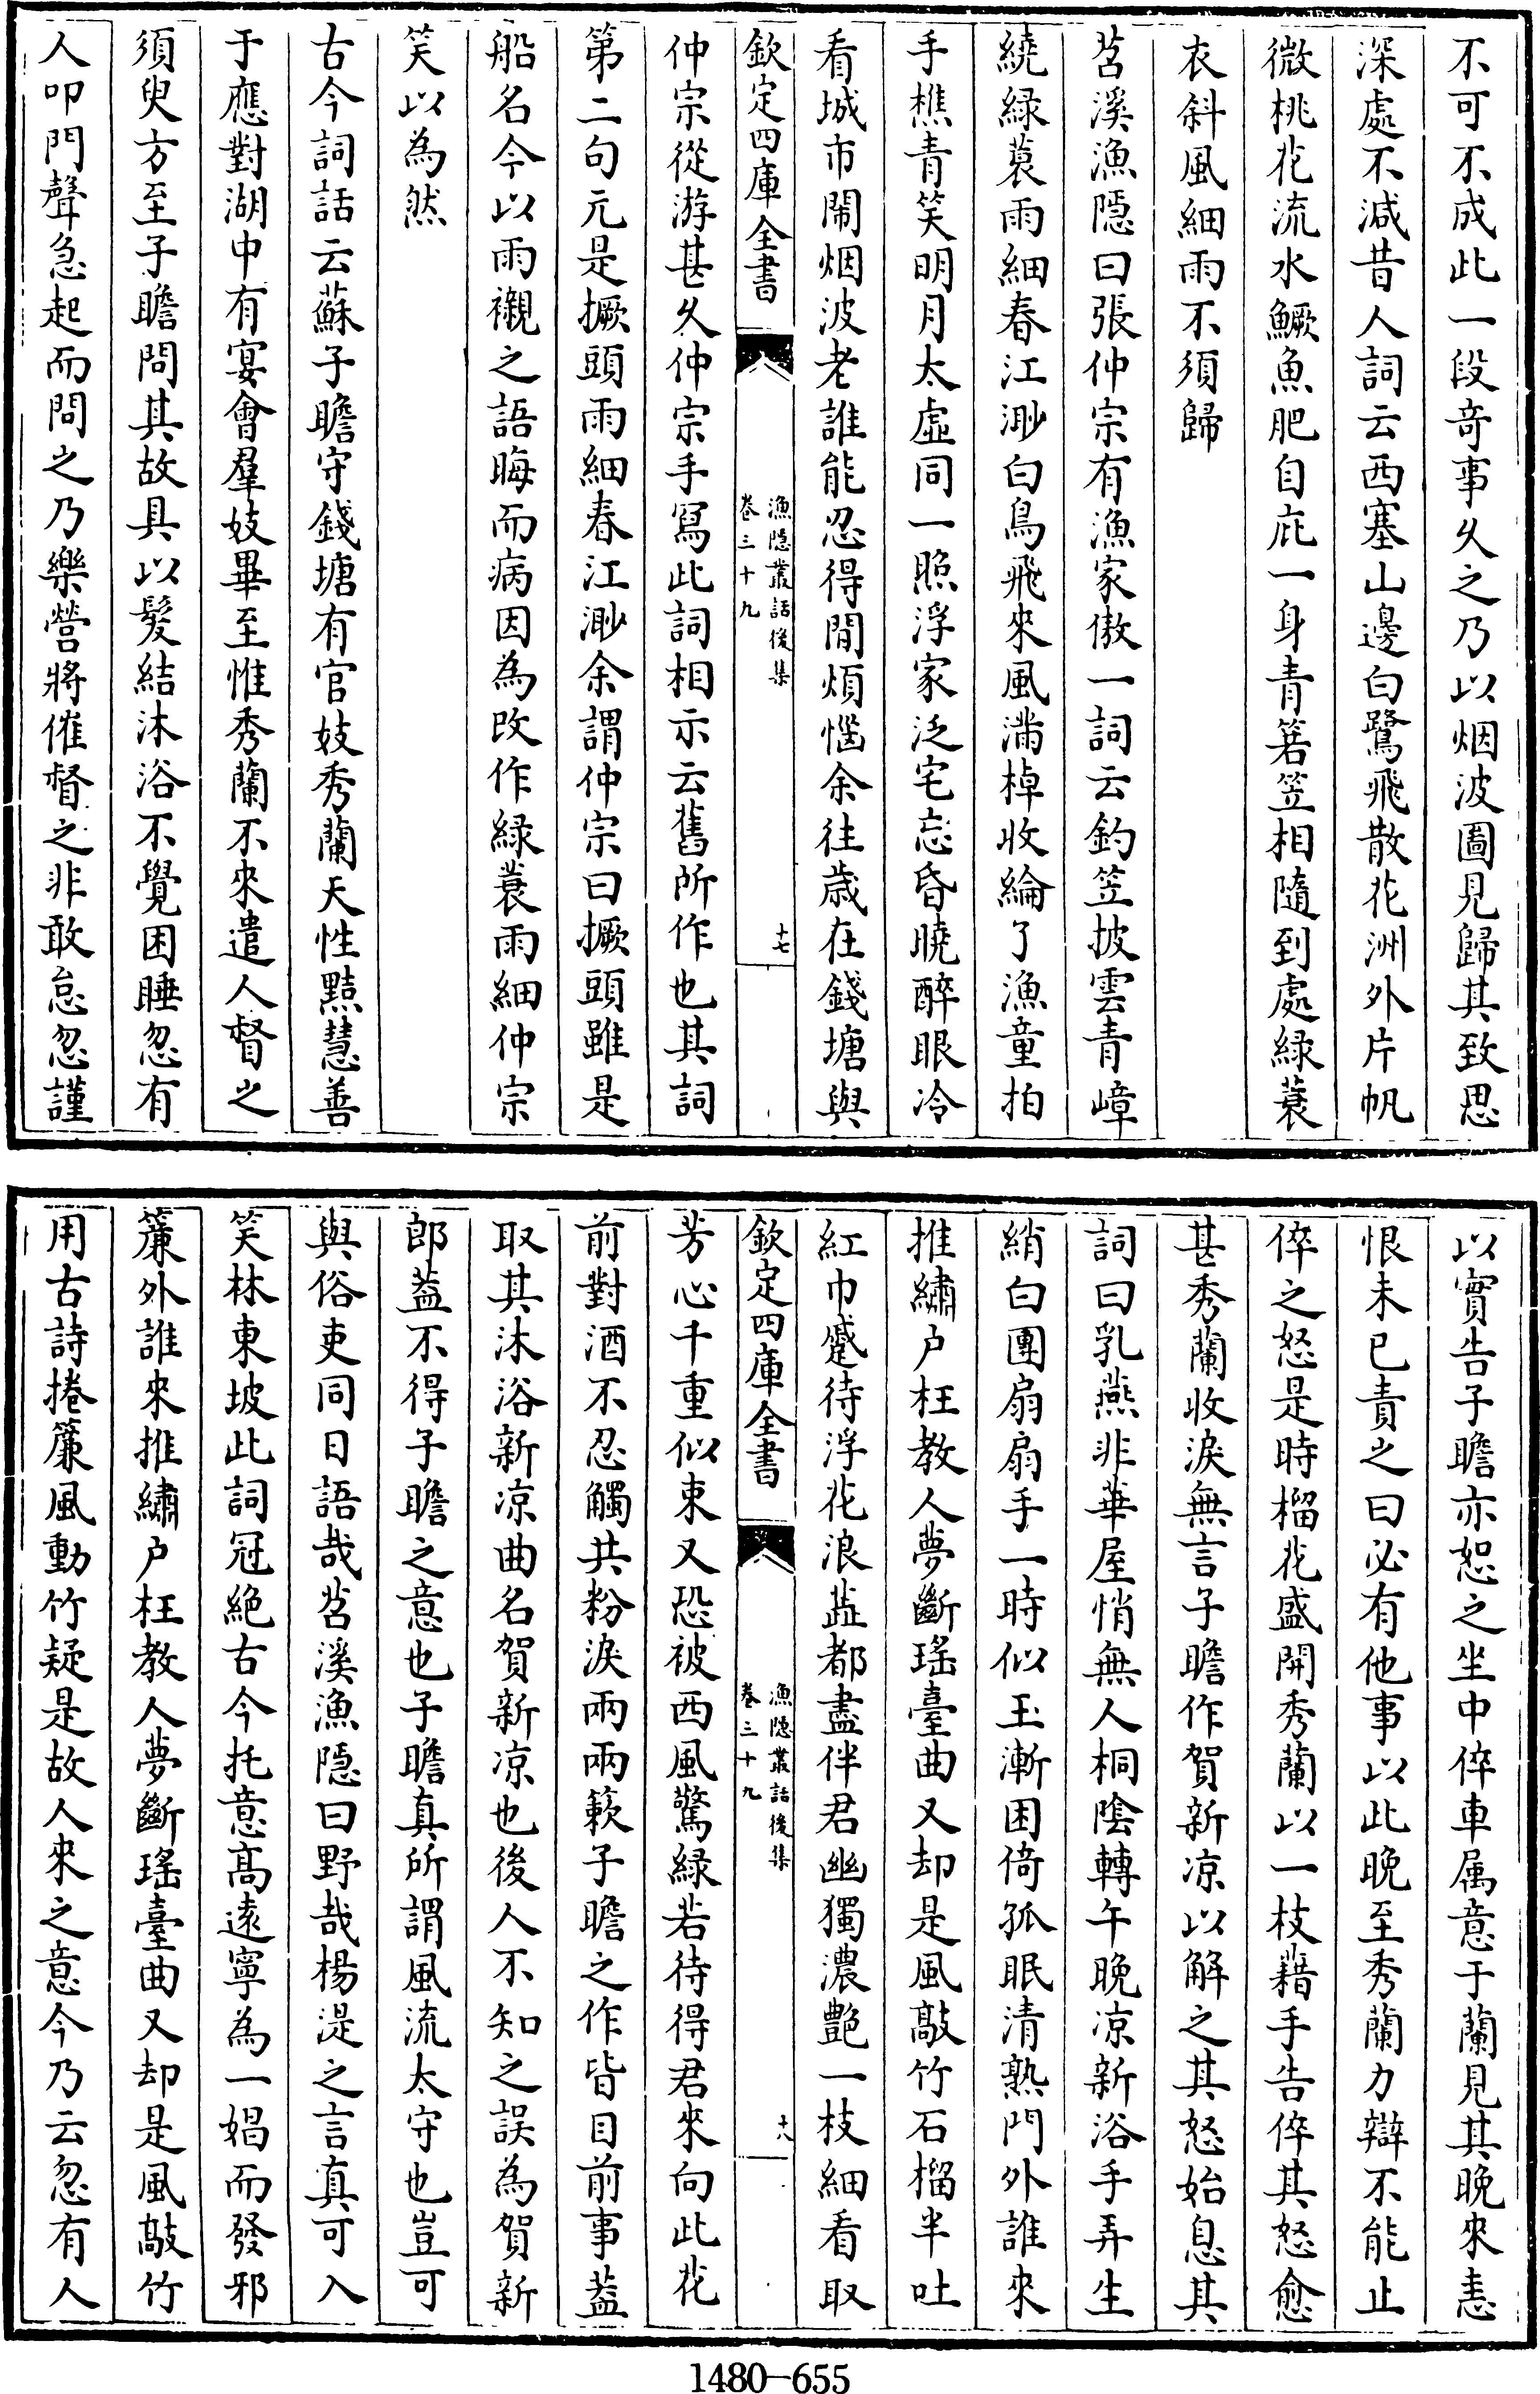 不可不成此一段奇事久之乃以烟波圖見歸其致思
深處不減昔人詞云西塞山邊白鷺飛散花洲外片帆
微桃花流水鱖魚肥自庇一身青箬笠相隨到處緑蓑
衣斜風細雨不須歸
苕溪漁隱曰張仲宗有漁家傲一詞云釣笠披雲青嶂
繞緑蓑雨細春江渺白鳥飛來風滿棹收綸了漁童拍
手樵青笑明月太虛同一照浮家泛宅忘昏曉醉眼冷
看城市閙烟波老誰能忍得閒煩惱余往歲在錢塘與
欽定四庫全書 漁隱叢話後集 卷三十九 十七
仲宗從游甚久仲宗手寫此詞相示云舊所作也其詞
第二句元是撅頭雨細春江渺余謂仲宗曰撅頭雖是
船名今以雨襯之語晦而病因為改作緑蓑雨細仲宗
笑以為然
古今詞話云蘇子瞻守錢塘有官妓秀蘭天性黠慧善
于應對湖中有宴會羣妓畢至惟秀蘭不來遣人督之
須臾方至子瞻問其故具以髮結沐浴不覺困睡忽有
人叩門聲急起而問之乃樂營將催督之非敢怠忽謹
以實告子瞻亦恕之坐中倅車属意于蘭見其晚來恚
恨未已責之曰必有他事以此晚至秀蘭力辯不能止
倅之怒是時榴花盛開秀蘭以一枝藉手告倅其怒愈
甚秀蘭收淚無言子瞻作賀新凉以解之其怒始息其
詞曰乳燕非華屋悄無人桐陰轉午晚凉新浴手弄生
綃白團扇扇手一時似玉漸困倚孤眠清熟門外誰來
推繡户枉教人夢斷瑤臺曲又却是風敲竹石榴半吐
紅巾蹙待浮花浪蕋都盡伴君幽獨濃艷一枝細看取
欽定四庫全書 漁隱叢話後集 卷三十九 十八
芳心千重似束又恐被西風驚緑若待得君來向此花
前對酒不忍觸共粉淚兩兩簌子瞻之作皆目前事葢
取其沐浴新凉曲名賀新凉也後人不知之誤為賀新
郎葢不得子瞻之意也子瞻真所謂風流太守也豈可
與俗吏同日語哉苕溪漁隱曰野哉楊湜之言真可入
笑林東坡此詞冠絶古今托意髙遠寧為一娼而發邪
簾外誰來推繡户枉教人夢斷瑤臺曲又却是風敲竹
用古詩捲簾風動竹疑是故人來之意今乃云忽有人
1480-655